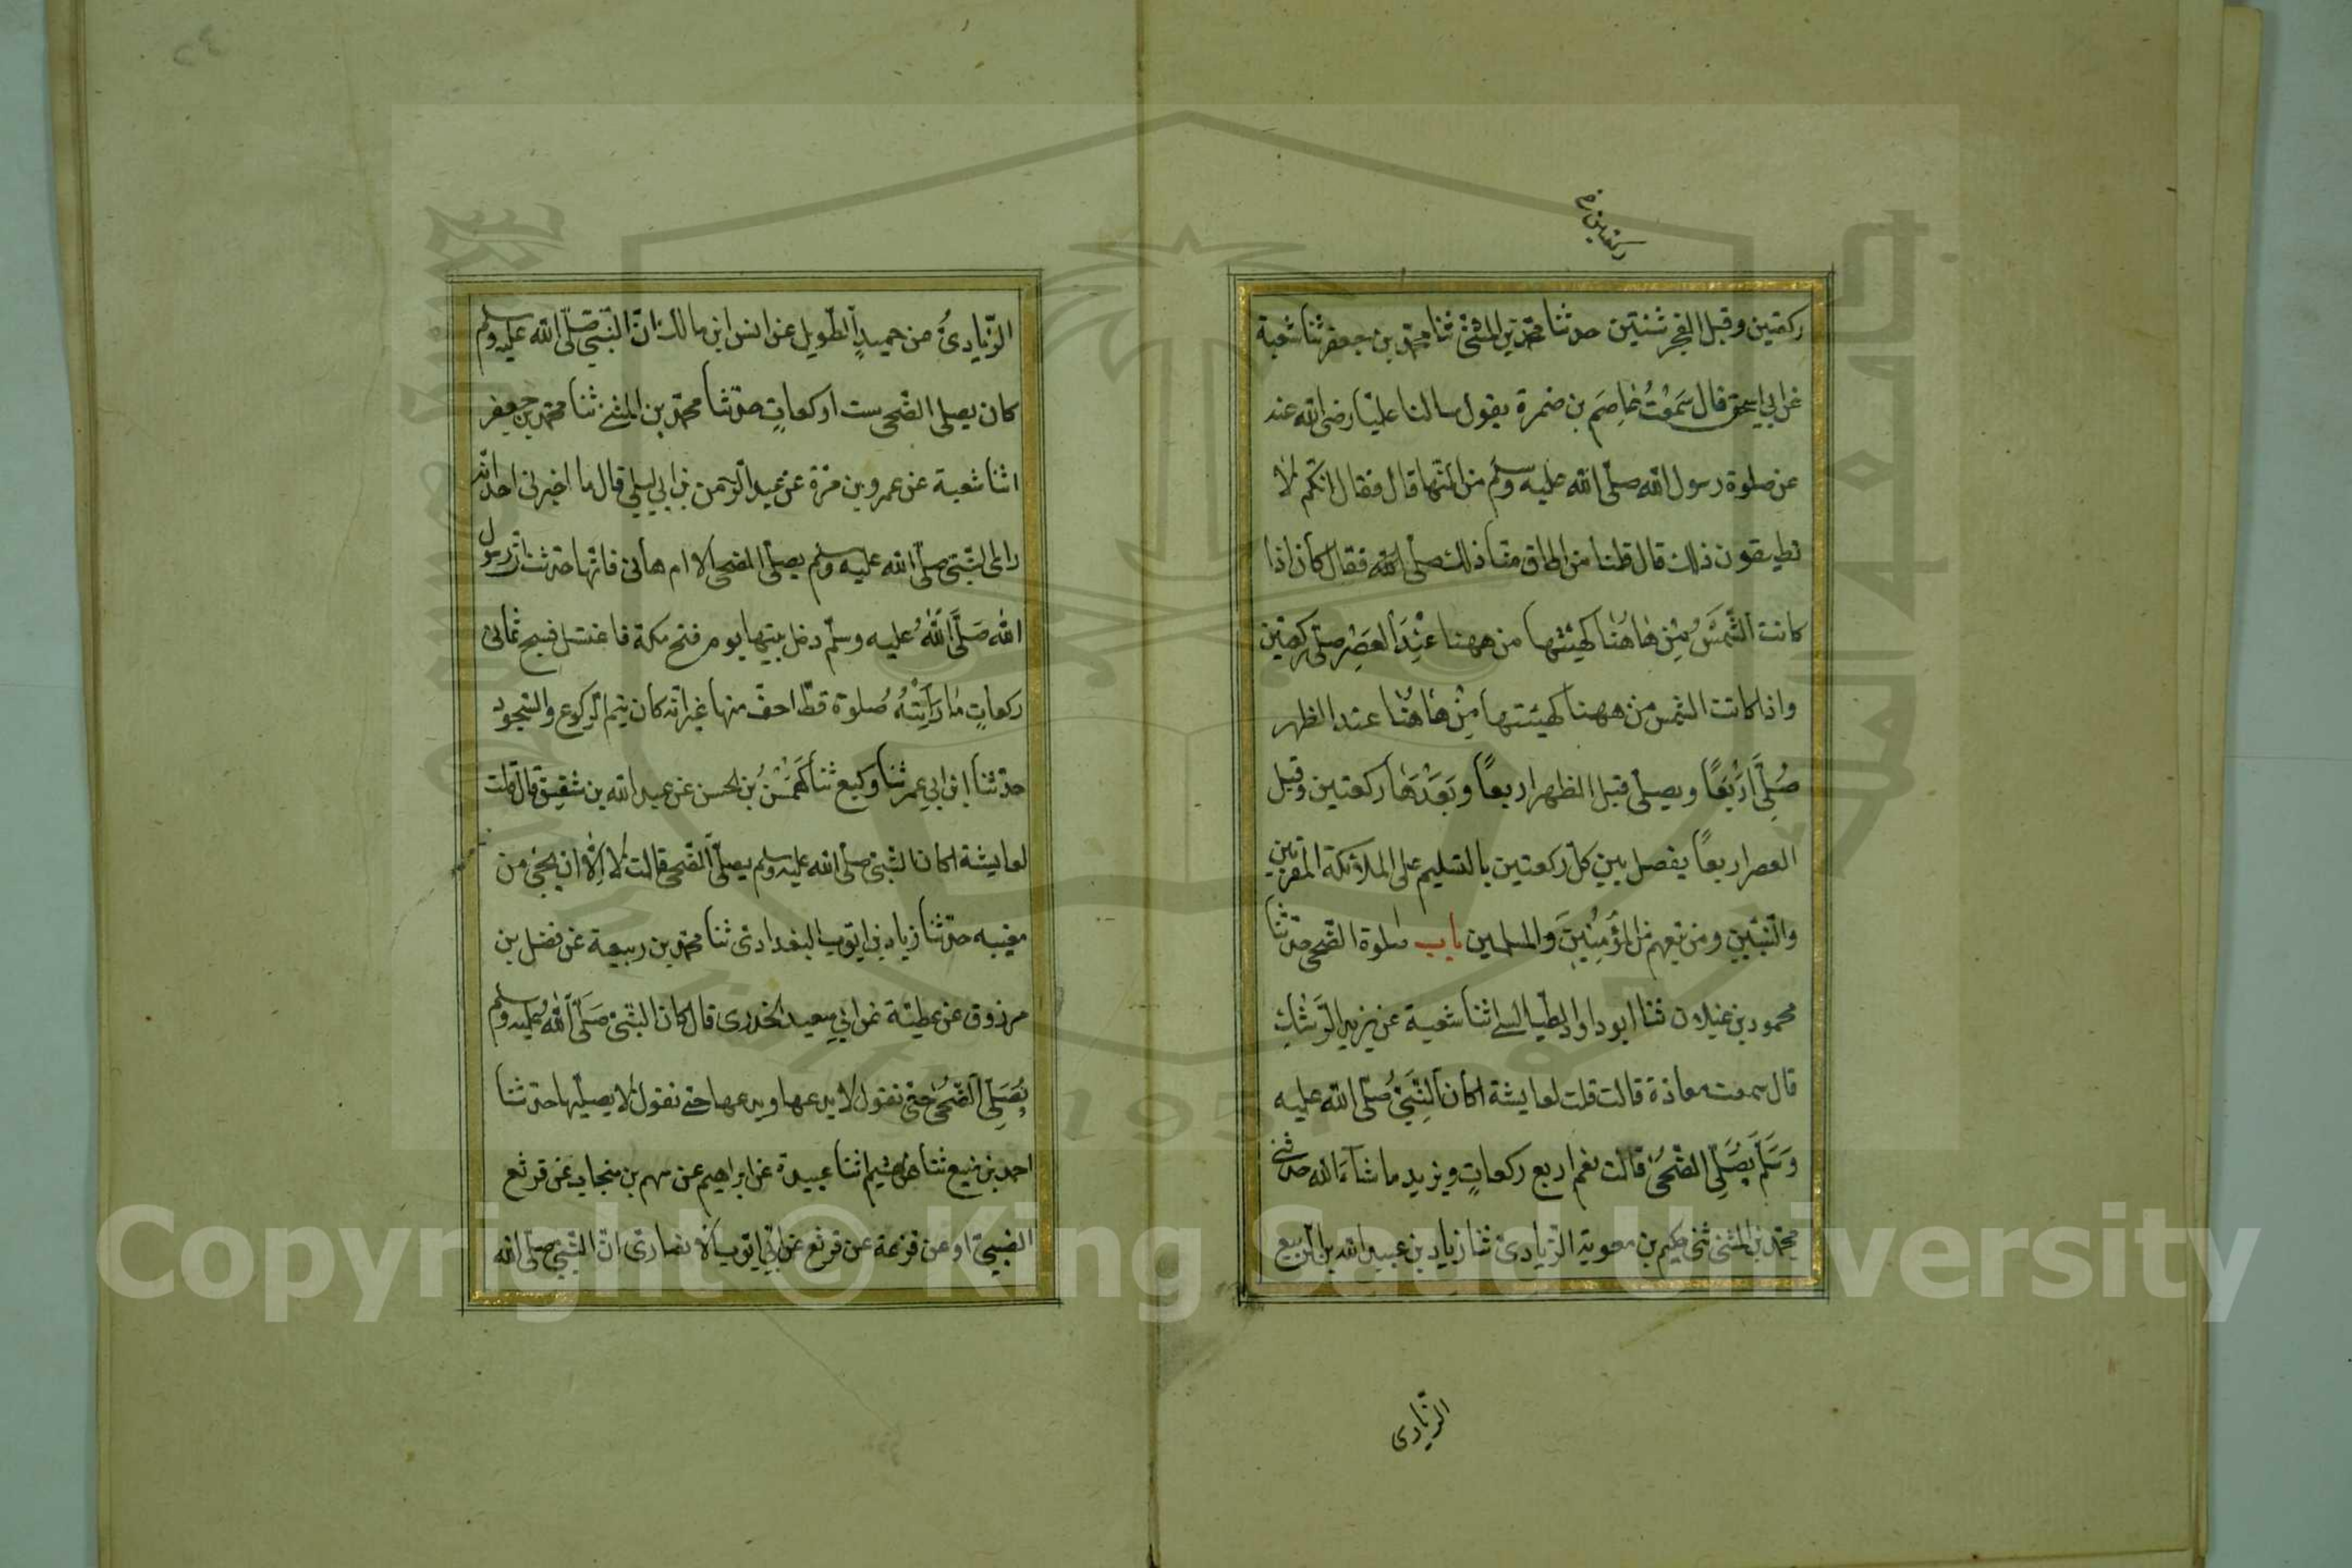 ركعتين ره
ركعتين وقبل الفجر ثنتين حدثنا محمد بن المثنى ثنا محمد بن جعفر ثنا شعبة
عن ابي اسحق قال سَمِعْتُ عَاصِمَ بن ضمرة يقول سالنا عليّا رضى الله عنه
عن صلوة رسول الله صلّى الله عليه وسلّم من النّهار قال فقال انّكم لا
تطيقون ذلك قال قلنا من اطاق منّا ذلك صلّى فقال كان اذا
كانت الشَّمْسُ مِنْ هَاهُنَا كهيئتها من ههنا عِنْدَ العَصْرِ صلّى ركعتين
واذا كانت الشمس من ههنا كهيئتها مِنْ هَاهُنَا عند الظهر
صَلَّى اَرْبَعًا ويصلّى قبل الظهر اربعًا وبَعْدَهَا ركعتين وقبل
العصر اربعًا يفصل بين كلّ ركعتين بالتسليم على الملائكة المقربين
والنّبيّين ومن تبعهم من المُؤْمِنِينَ والمسلمين باب صلوة الضّحى حدّثنا
محمود بن غيلان ثنا ابو داود الطيالسى اثنا شعبة عن يزيد الرّشك
قال سمعت معاذة قالت قلت لعايشة اكان النَّبِيُّ صلّى الله عليه
وَسَلَّمَ يُصَلِّى الضّحى قالت نعم اربع ركعاتٍ ويزيد ما شآء الله حدثنى
محمّد بن المثنى ثنى حكيم بن معوية الزيادى ثنا زياد بن عبيد الله بن الربيع
الزّيادى
الزّيادىُّ عن حميدٍ الطّويل عن انس ابن مالك انّ النّبىّ صلّى الله عليه وسلم
كان يصلى الضّحى ست ركعاتٍ حدّثنا محمّد بن المثنى ثنا محمّد بن جعفر
اثنا شعبة عن عمرو بن مرّة عن عبد الرّحمن بن ابى ليلى قال ما اخبرنى احد انّه
راى النّبىّ صلّى الله عليه وسلم يصلّى الضحى الا ام هانى فانّها حدّثت انّ رسول
الله صَلَّى اللّٰهُ عليه وسلّم دخل بيتها يوم فتح مكة فاغتسل فسبح ثمانى
ركعاتٍ مَا رَاَيْتُهُ صَلوة قطّ اخفّ منها غير انّه كان يتم الرّكوع والسّجود
حدّثنا ابن ابى عمر ثنا وكيع ثنا كَهْمَسُ بن الحسن عن عبد الله بن شقيق قال قلت
لعايشة اكان النّبىّ صلّى الله عليه وسلم يصلّى الضّحى قالت لا اِلّا ان يجئ من
مغيبه حدّثنا زياد بن ايّوب البغدادى ثنا محمّد بن ربيعة عن فضل بن
مرزوق عن عطيّة عن ابى سعيد الخدرى قال كان النبىّ صَلَّى اللّٰهُ عليه وسلم
يُصَلِّى الضُّحَى حتى نقول لا يدعها ويدعها حتى نقول لا يصلّيها حدّثنا
احمد بن منيع ثنا هشيم اثنا عبيدة عن ابراهيم عن سهم بن منجاب عن قرثع
الضبىّ او عن قزعة عن قرثع عن ابى ايّوب الانصارى انّ النّبىّ صلّى الله
Copyright © King Saud University
1957